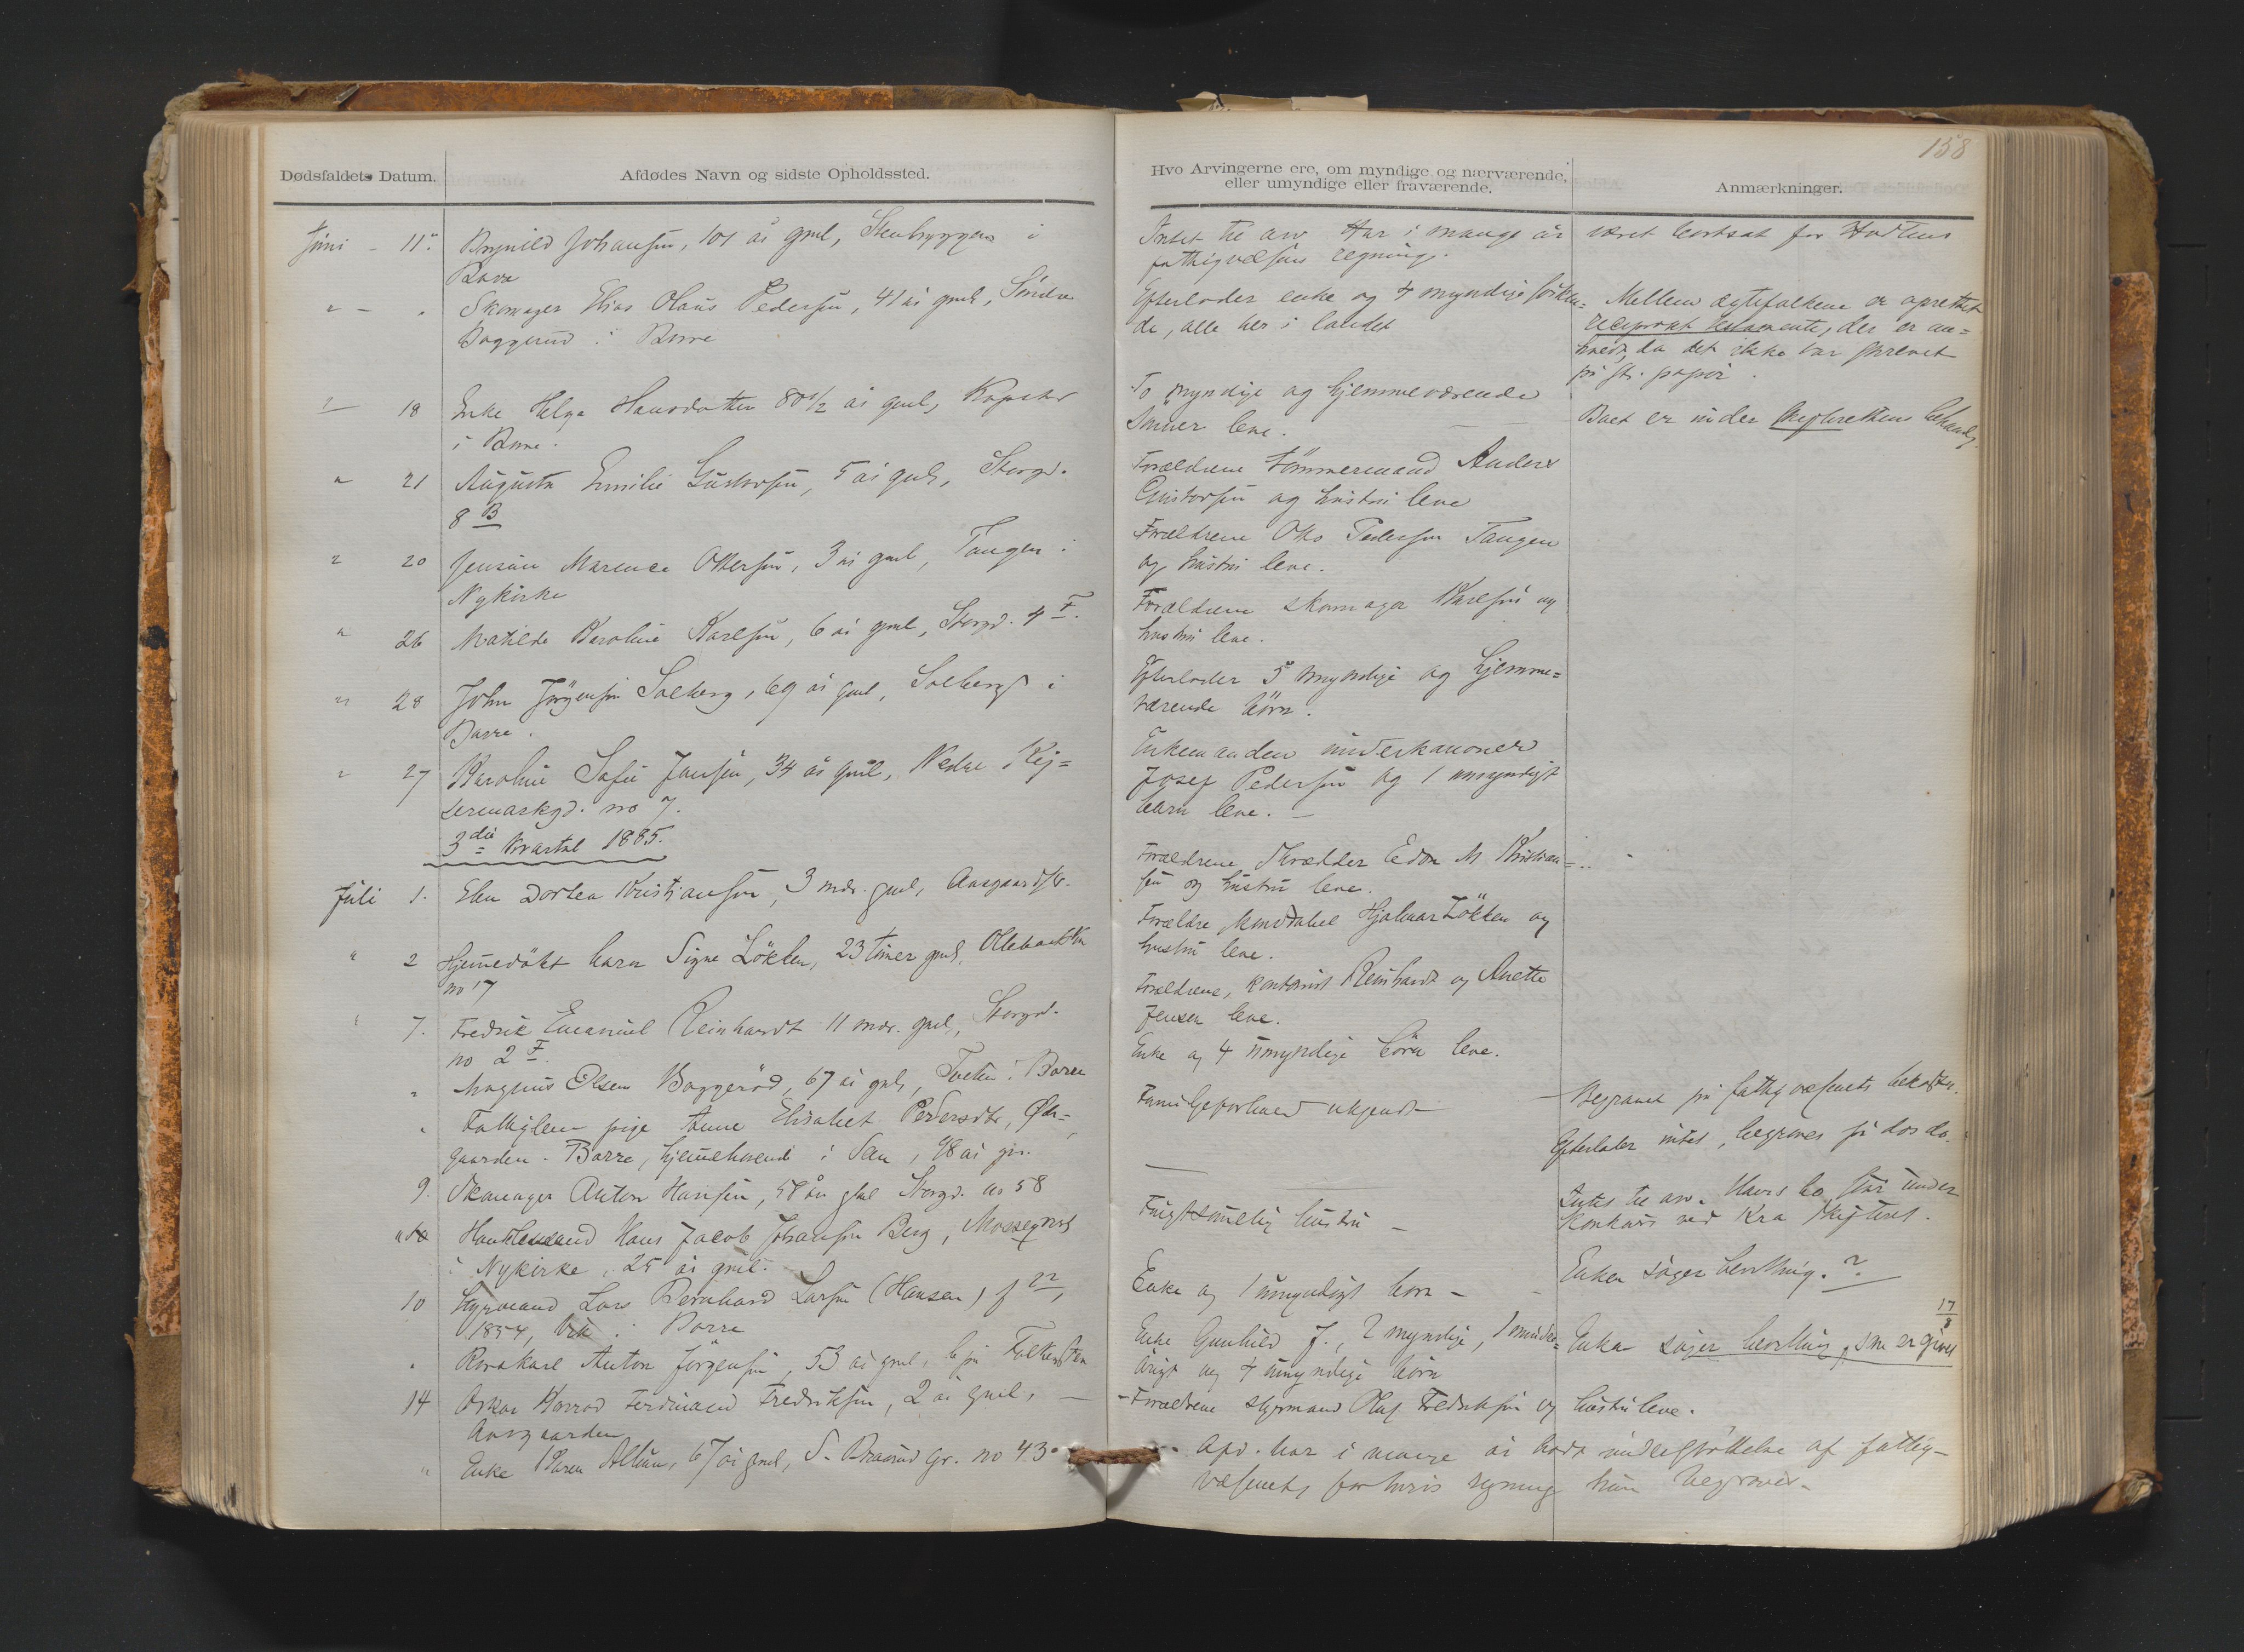 158
Dødsfaldets Datum.
Afdødes Navn og sidste Opholdssted.
Hvo Arvingerne ere, om myndige og nærværende,
eller umyndige eller fraværende.
Anmærkninger.
Juni - 11. Brynild Johansen, 101 år gml, Stenbryggen i
Borre
Intet til arv. Har i mange år
været bortsat for Hortens
fattigvæsens regning.
Skomager Elias Olaus Pedersen, 41 år gml, Søndre
Baggerud i Borre
Efterlader enke og 4 myndige
de, alle her i landet
Mellem ægtefolkene er oprettet
reciprokt testamente, der er an=
da det ikke var skrevet
på st. papir.
18 Enke Helga Hansdatter 80 1/2 år gml,
i Borre.
To myndige og hjemmeværende
Sønner leve.
Boet er under skifterettens behandlg
21 Augusta Emilie Gustavsen, 5 år gml, Storgd.
8 B
Forældrene tømmermand Anders
Gustavsen og hustru leve
20 Marence Ottersen, 3 år gml, Tangen i
Nykirke
Forældrene Otto Pedersen Tangen
og hustru leve.
26 Matilde Karoline Karlsen, 6 år gml, Storgd. 4 F.
Forældrene skomager Karlsen og
hustru leve.
28 John Jørgensen Solberg, 69 år gml, Solberg i
Borre.
Efterlader 5 myndige og hjemme=
værende børn.
27 Karoline Sofie Jansen, 34 år gml, Nedre Kej=
sermarkgd. no 7.
Enkemanden underkanoner
Josef Pedersen og 1 umyndigt
barn leve. -
3die Kvartal 1885.
Juli 1. Elen Dortea Kristiansen, 3 mdr. gml, Aasgaardstr.
Forældrene Skrædder Edv. M. Kristian=
sen og hustru leve.
2 Hjemmedøbt barn Signe Løkken, 23 timer gml,
no 17
Forældre, konstabel Hjalmar Løkken og
hustru leve.
7. Fredrik Emanuel Reinhardt 11 mdr. gml, Storgd.
no 2 F.
Forældrene, kontorist Reinhardt og Anette
Jensen leve.
Magnus Olsen Baggerød, 67 år gml, i Borre
Enke og 4 umyndige børn leve.
Fattiglem pige Anne Elisabet Pedersdtr,
gaarden. Borre, hjemmehørende i Sem, 48 år gm.
Familjeforhold ukjendt
Begravet på fattigvæsenets bekostn.
9. Skomager Anton Hansen, 58 år gml Storgd. no 58
Efterlader intet, begraves på do do.
Handlesmand Hans Jacob Johansen Berg,
i Nykirke, 25 år gml.
Frugtsomelig hustru -
Intet til arv. Hans bo står under
konkurs ved Kra skifteret.
10 Styrmand Lars Bernhard Larsen (Hansen) f
1854, Vik i Borre
Enke og 1 umyndigt barn -
Enken søger bevilling. ?
Rorskarl Anton Jørgensen, 53 år gml, Falkensten
Enke Gunhild J., 2 myndige, 1 minder=
årigt og 4 umyndige børn
Enken søger bevilling, som er givet
17/8
14 Oskar Konrad Ferdinand Fredriksen, 2 år gml, -
Aasgaarden
- Forældrene styrmand Olaf Fredriksen og hustru leve.
Enke Karen Altum, 67 år gml, S. Braarud gr. no 43.
Afd. har i mange år havt understøttelse af fattig-
væsenet, for hvis regning hun begraves.